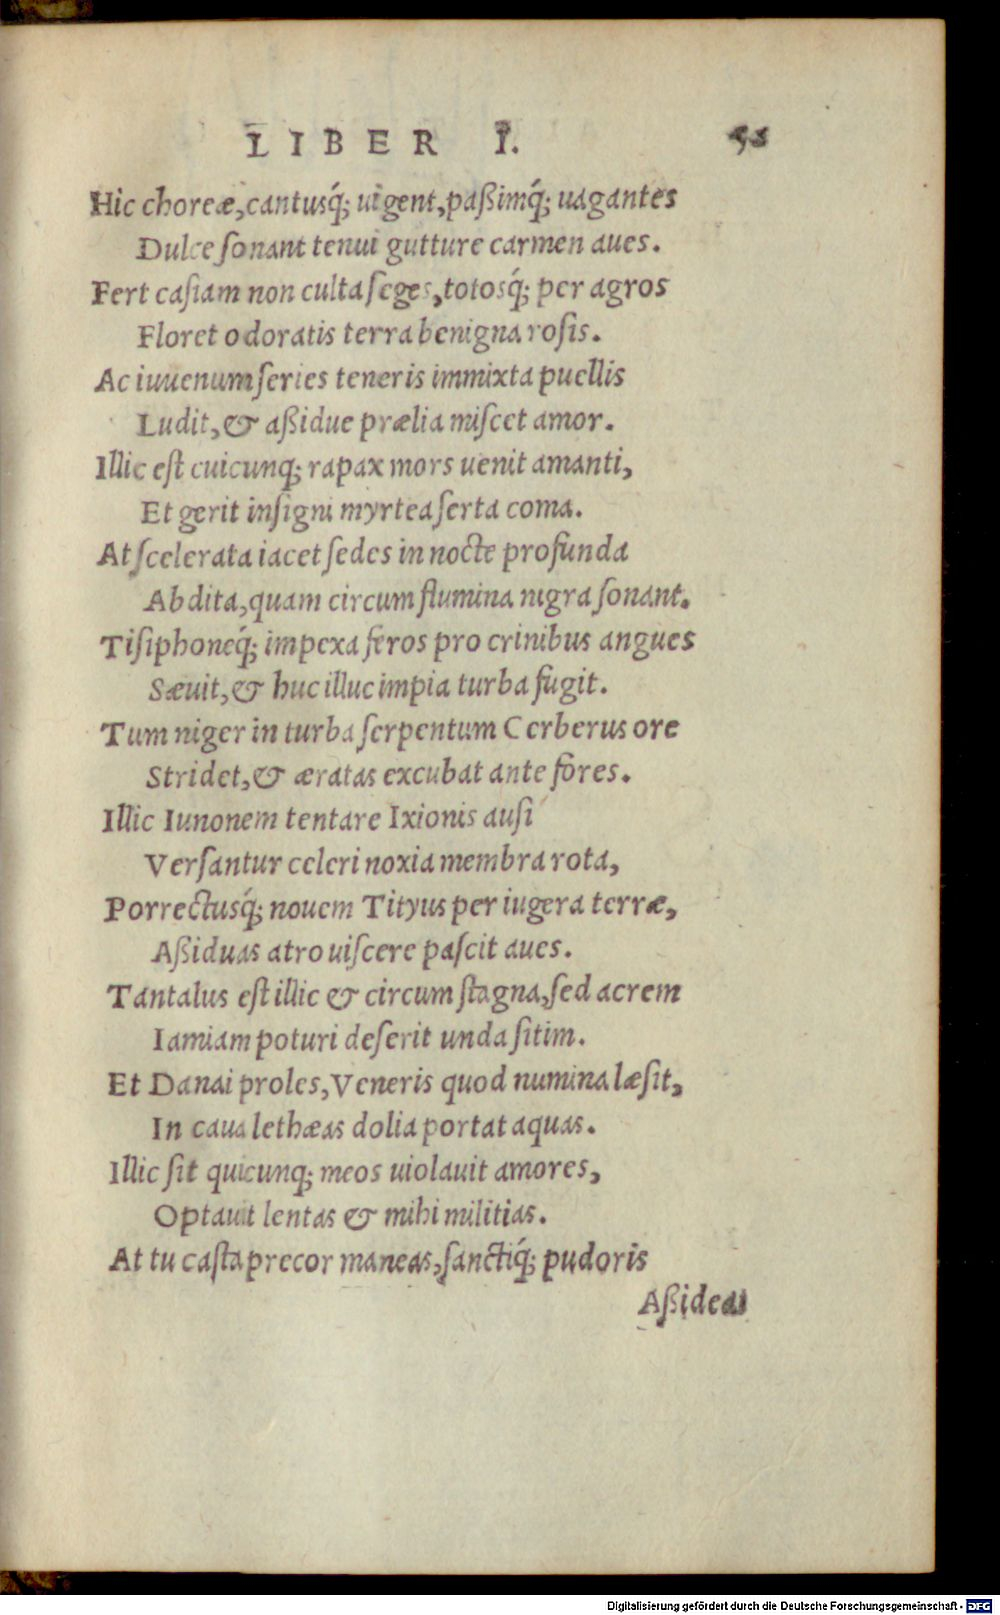 LIBER I.
Hic choreæ, cantusq́; uigent, paßimq́; uagantes
Dulce ſonant tenui gutture carmen aues.
Fert caſiam non culta ſeges, totosq́; per agros
Floret odoratis terra benigna roſis.
Ac iuuenum ſeries teneris immixta puellis
Ludit, & aßidue prælia miſcet amor.
Illic eſt cuicunq; rapax mors uenit amanti,
Et gerit inſigni myrtea ſerta coma.
At ſcelerata iacet ſedes in nocte profunda
Abdita, quam circum flumina nigra ſonant.
Tiſiphoneq́; impexa feros pro crinibus angues
Sæuit, & huc illuc impia turba fugit.
Tum niger in turba ſerpentum Cerberus ore
Stridet, & æratas excubat ante fores.
Illic Iunonem tentare Ixionis auſi
Verſantur celeri noxia membra rota,
Porrectusq́; nouem Tityus per iugera terræ,
Aßiduas atro uiſcere paſcit aues.
Tantalus eſt illic & circum ſtagna, ſed acrem
Iamiam poturi deſerit unda ſitim.
Et Danai proles, Veneris quod numina læſit,
In caua lethæas dolia portat aquas.
Illic ſit quicunq; meos uiolauit amores,
Optauit lentas & mihi militias.
At tu caſta precor maneas, ſanctiq́; pudoris
Aßideat
Digitalisierung gefördert durch die Deutsche Forschungsgemeinschaft - DFG